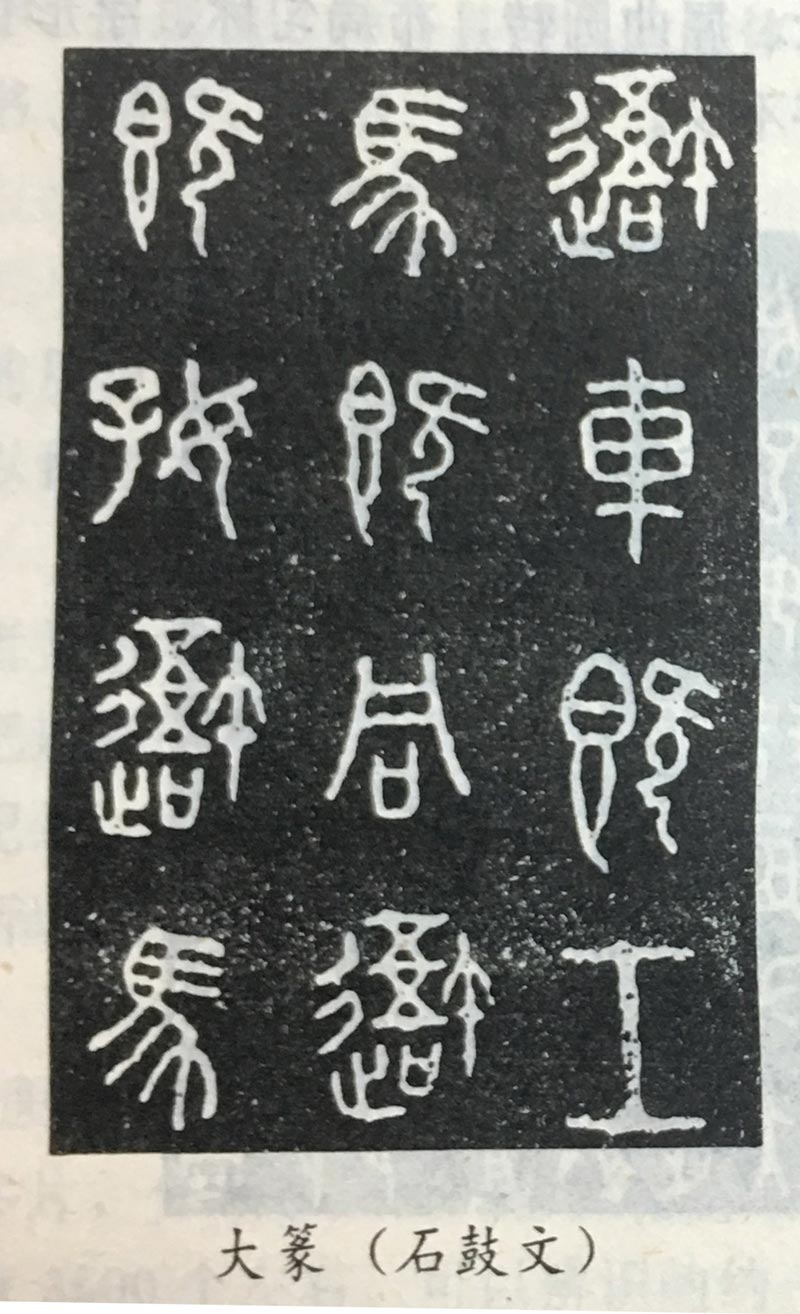 吾車既工
馬既同吾
既好吾馬
大篆（石鼓文）